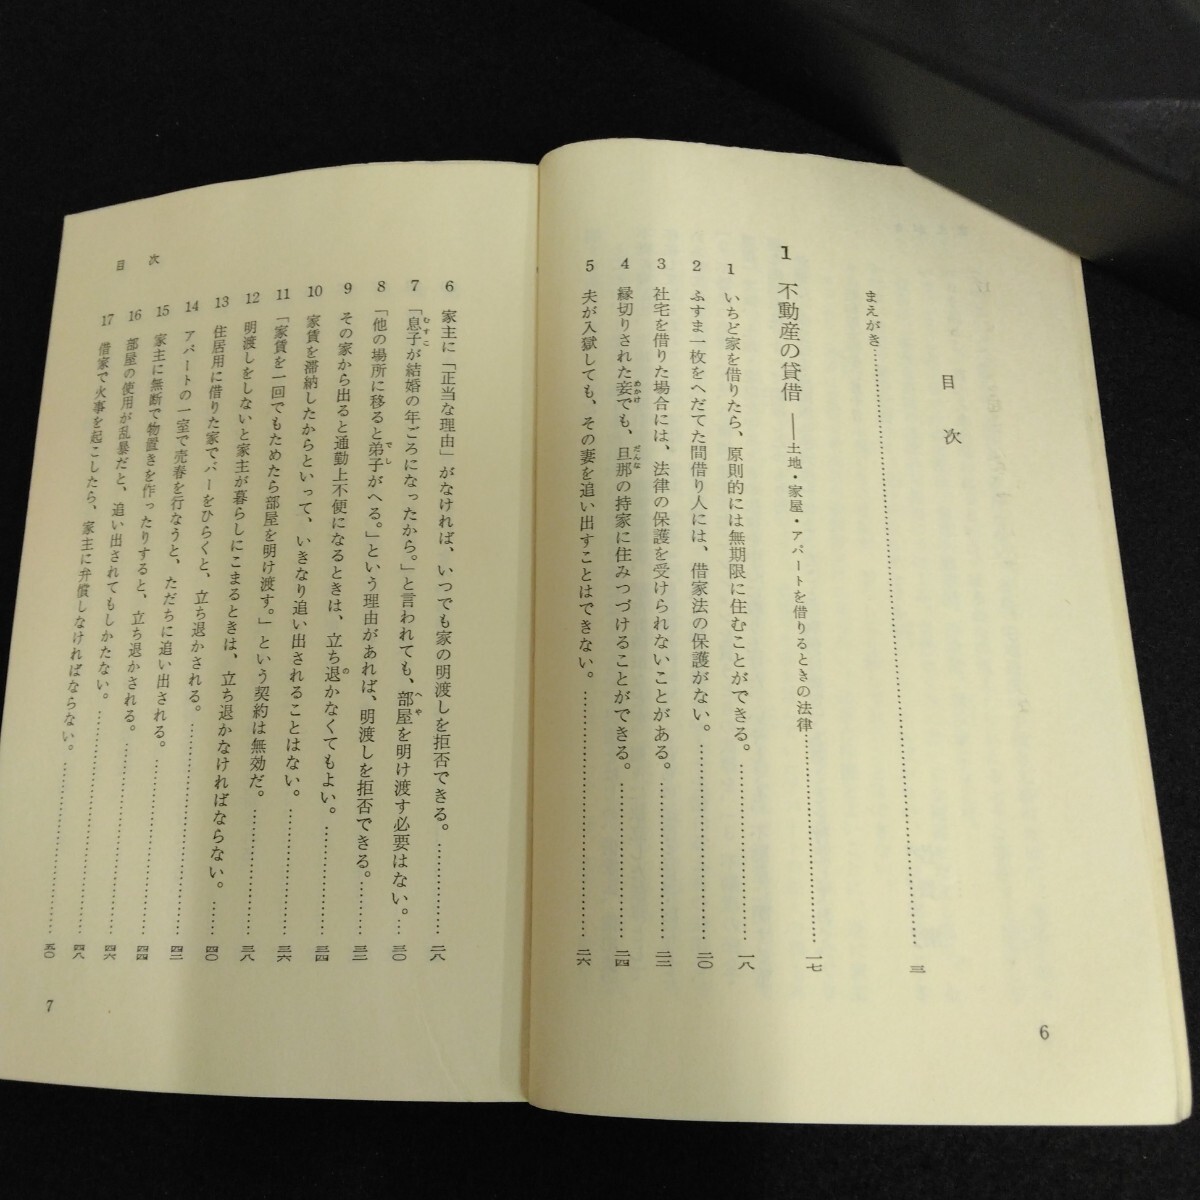 目次
まえがき……………………三
1 不動産の貸借 ――土地・家屋・アパートを借りるときの法律……………………一七
1 いちど家を借りたら、原則的には無期限に住むことができる。……………………一八
2 ふすま一枚をへだてた間借り人には、借家法の保護がない。……………………二〇
3 社宅を借りた場合には、法律の保護を受けられないことがある。……………………二二
4 縁切りされた妾でも、旦那の持家に住みつづけることができる。……………………二四
5 夫が入獄しても、その妻を追い出すことはできない。……………………二六
6
6 家主に「正当な理由」がなければ、いつでも家の明渡しを拒否できる。…………二八
7 「息子が結婚の年ごろになったから。」と言われても、部屋を明け渡す必要はない。…三〇
8 「他の場所に移ると弟子がへる。」という理由があれば、明渡しを拒否できる。……三二
9 その家から出ると通勤上不便になるときは、立ち退かなくてもよい。……………三四
10 家賃を滞納したからといって、いきなり追い出されることはない。……………三六
11 「家賃を一回でもためたら部屋を明け渡す。」という契約は無効だ。……………三八
12 明渡しをしないと家主が暮らしにこまるときは、立ち退かなければならない。……四〇
13 住居用に借りた家でバーをひらくと、立ち退かされる。……………………四二
14 アパートの一室で売春を行なうと、ただちに追い出される。……………………四四
15 家主に無断で物置きを作ったりすると、立ち退かされる。……………………四六
16 部屋の使用が乱暴だと、追い出されてもしかたない。……………………四八
17 借家で火事を起こしたら、家主に弁償しなければならない。……………………五〇
目次
7